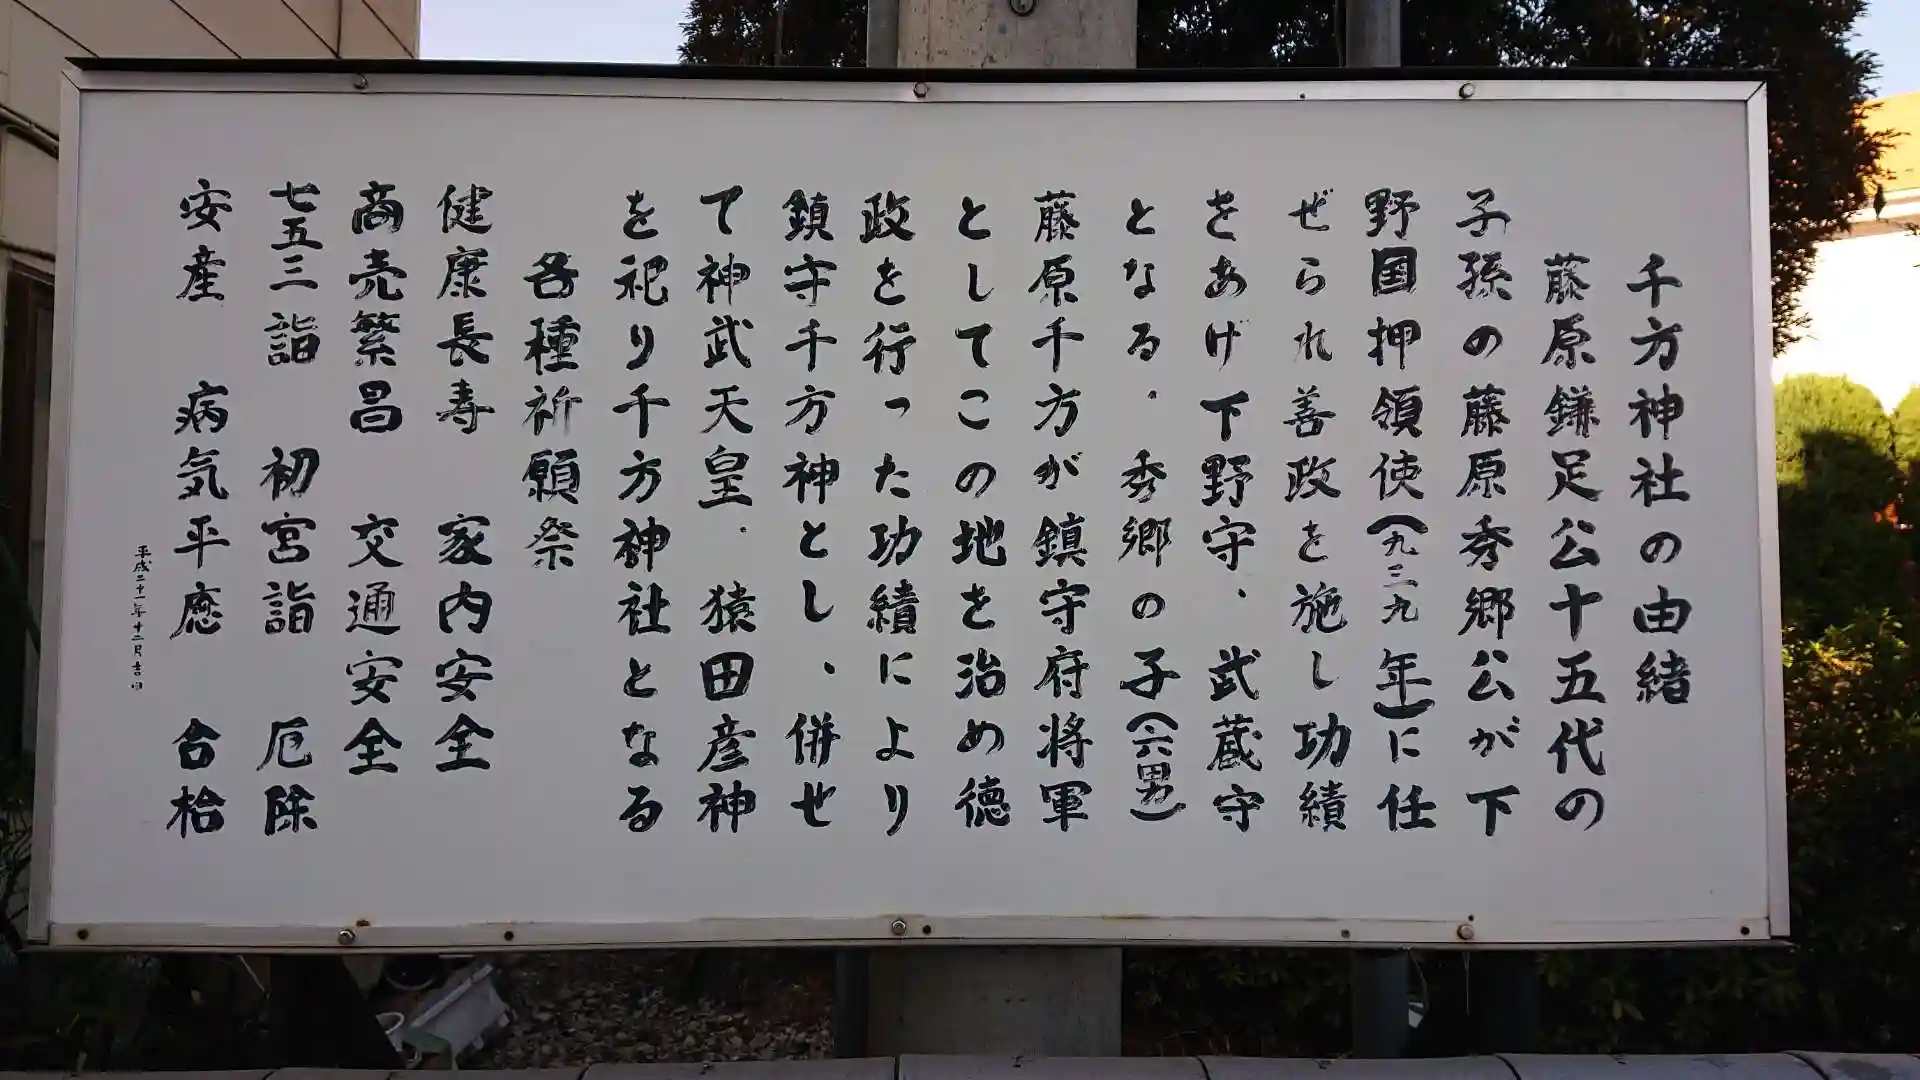 千方神社の由緒
藤原鎌足公十五代の
子孫の藤原秀郷公が下
野国押領使(九三九年)に任
ぜられ善政を施し功績
をあげ下野守、武蔵守
となる．秀郷の子(六男)
藤原千方が鎮守府将軍
としてこの地を治め徳
政を行った功績により
鎮守千方神とし、併せ
て神武天皇．猿田彦神
を祀り千方神社となる
各種祈願祭
健康長寿　家内安全
商売繁昌　交通安全
七五三詣　初宮詣　厄除
安産　病気平應　合格
平成二十一年十二月吉日